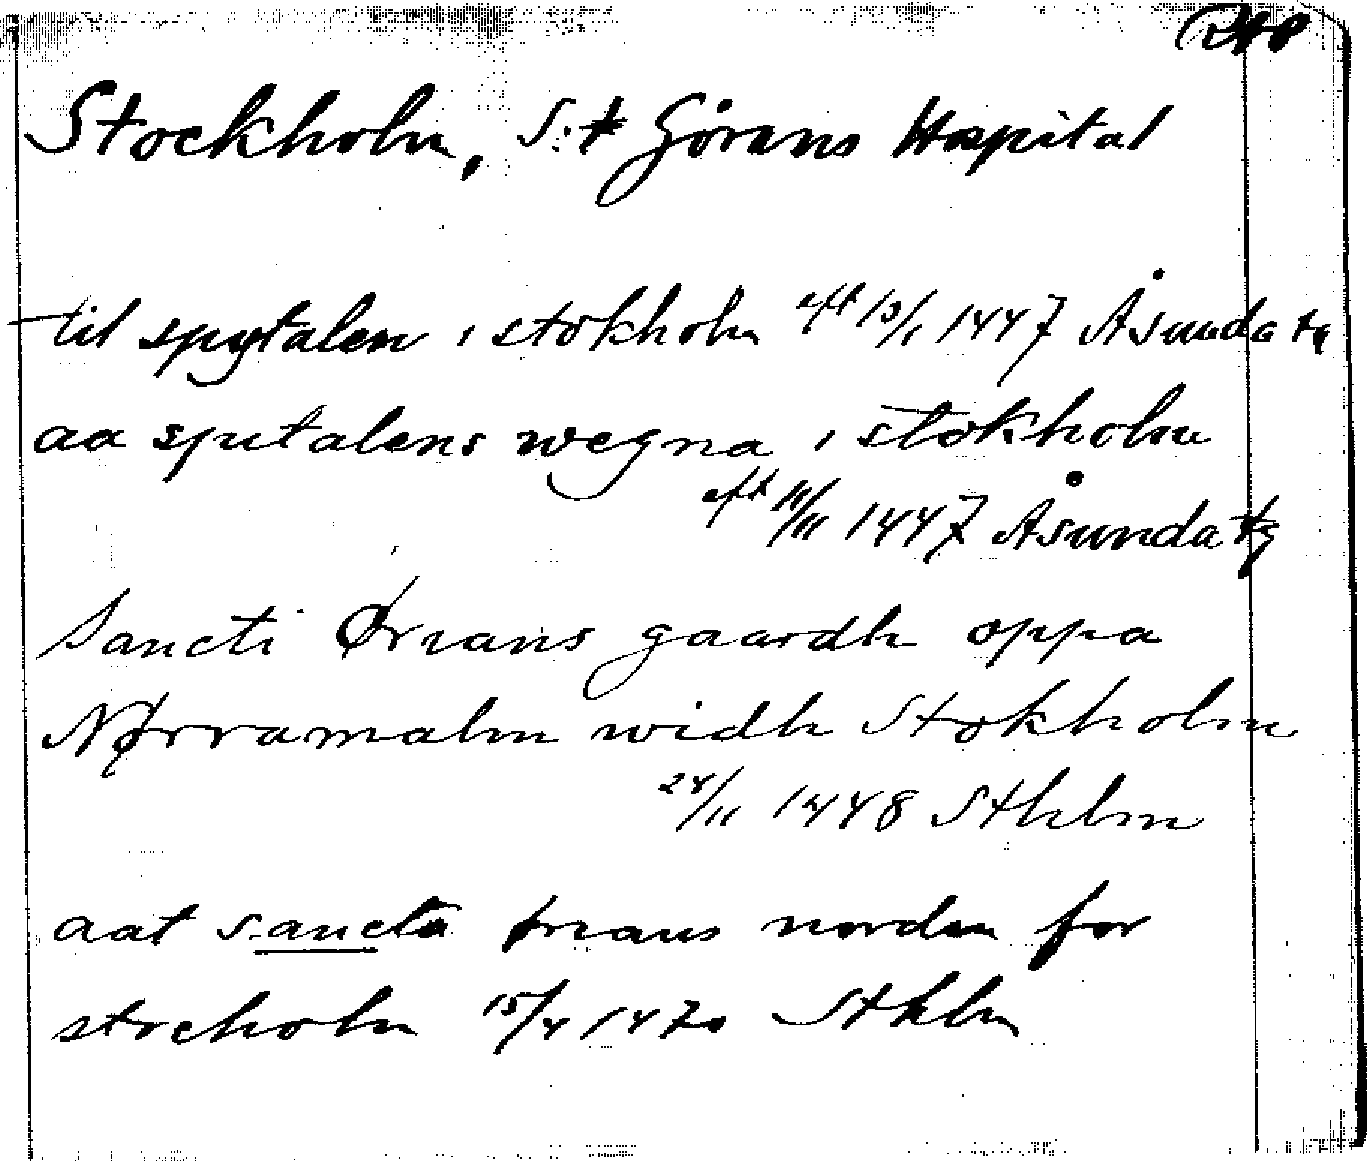 Stockholm, S:t Görans Hospital
til spytalen i stokholm eft 13/1 1447 Åsunda tg
aa spitalens wegna i stokholm
eft 11/11 1447 Åsunda tg
Sancti Ørians gaardh oppa
Nørramalm widh Stokholm
24/11 1448 Sthlm
aat sancta ørians norden for
stocholm 15/4 1470 Sthlm